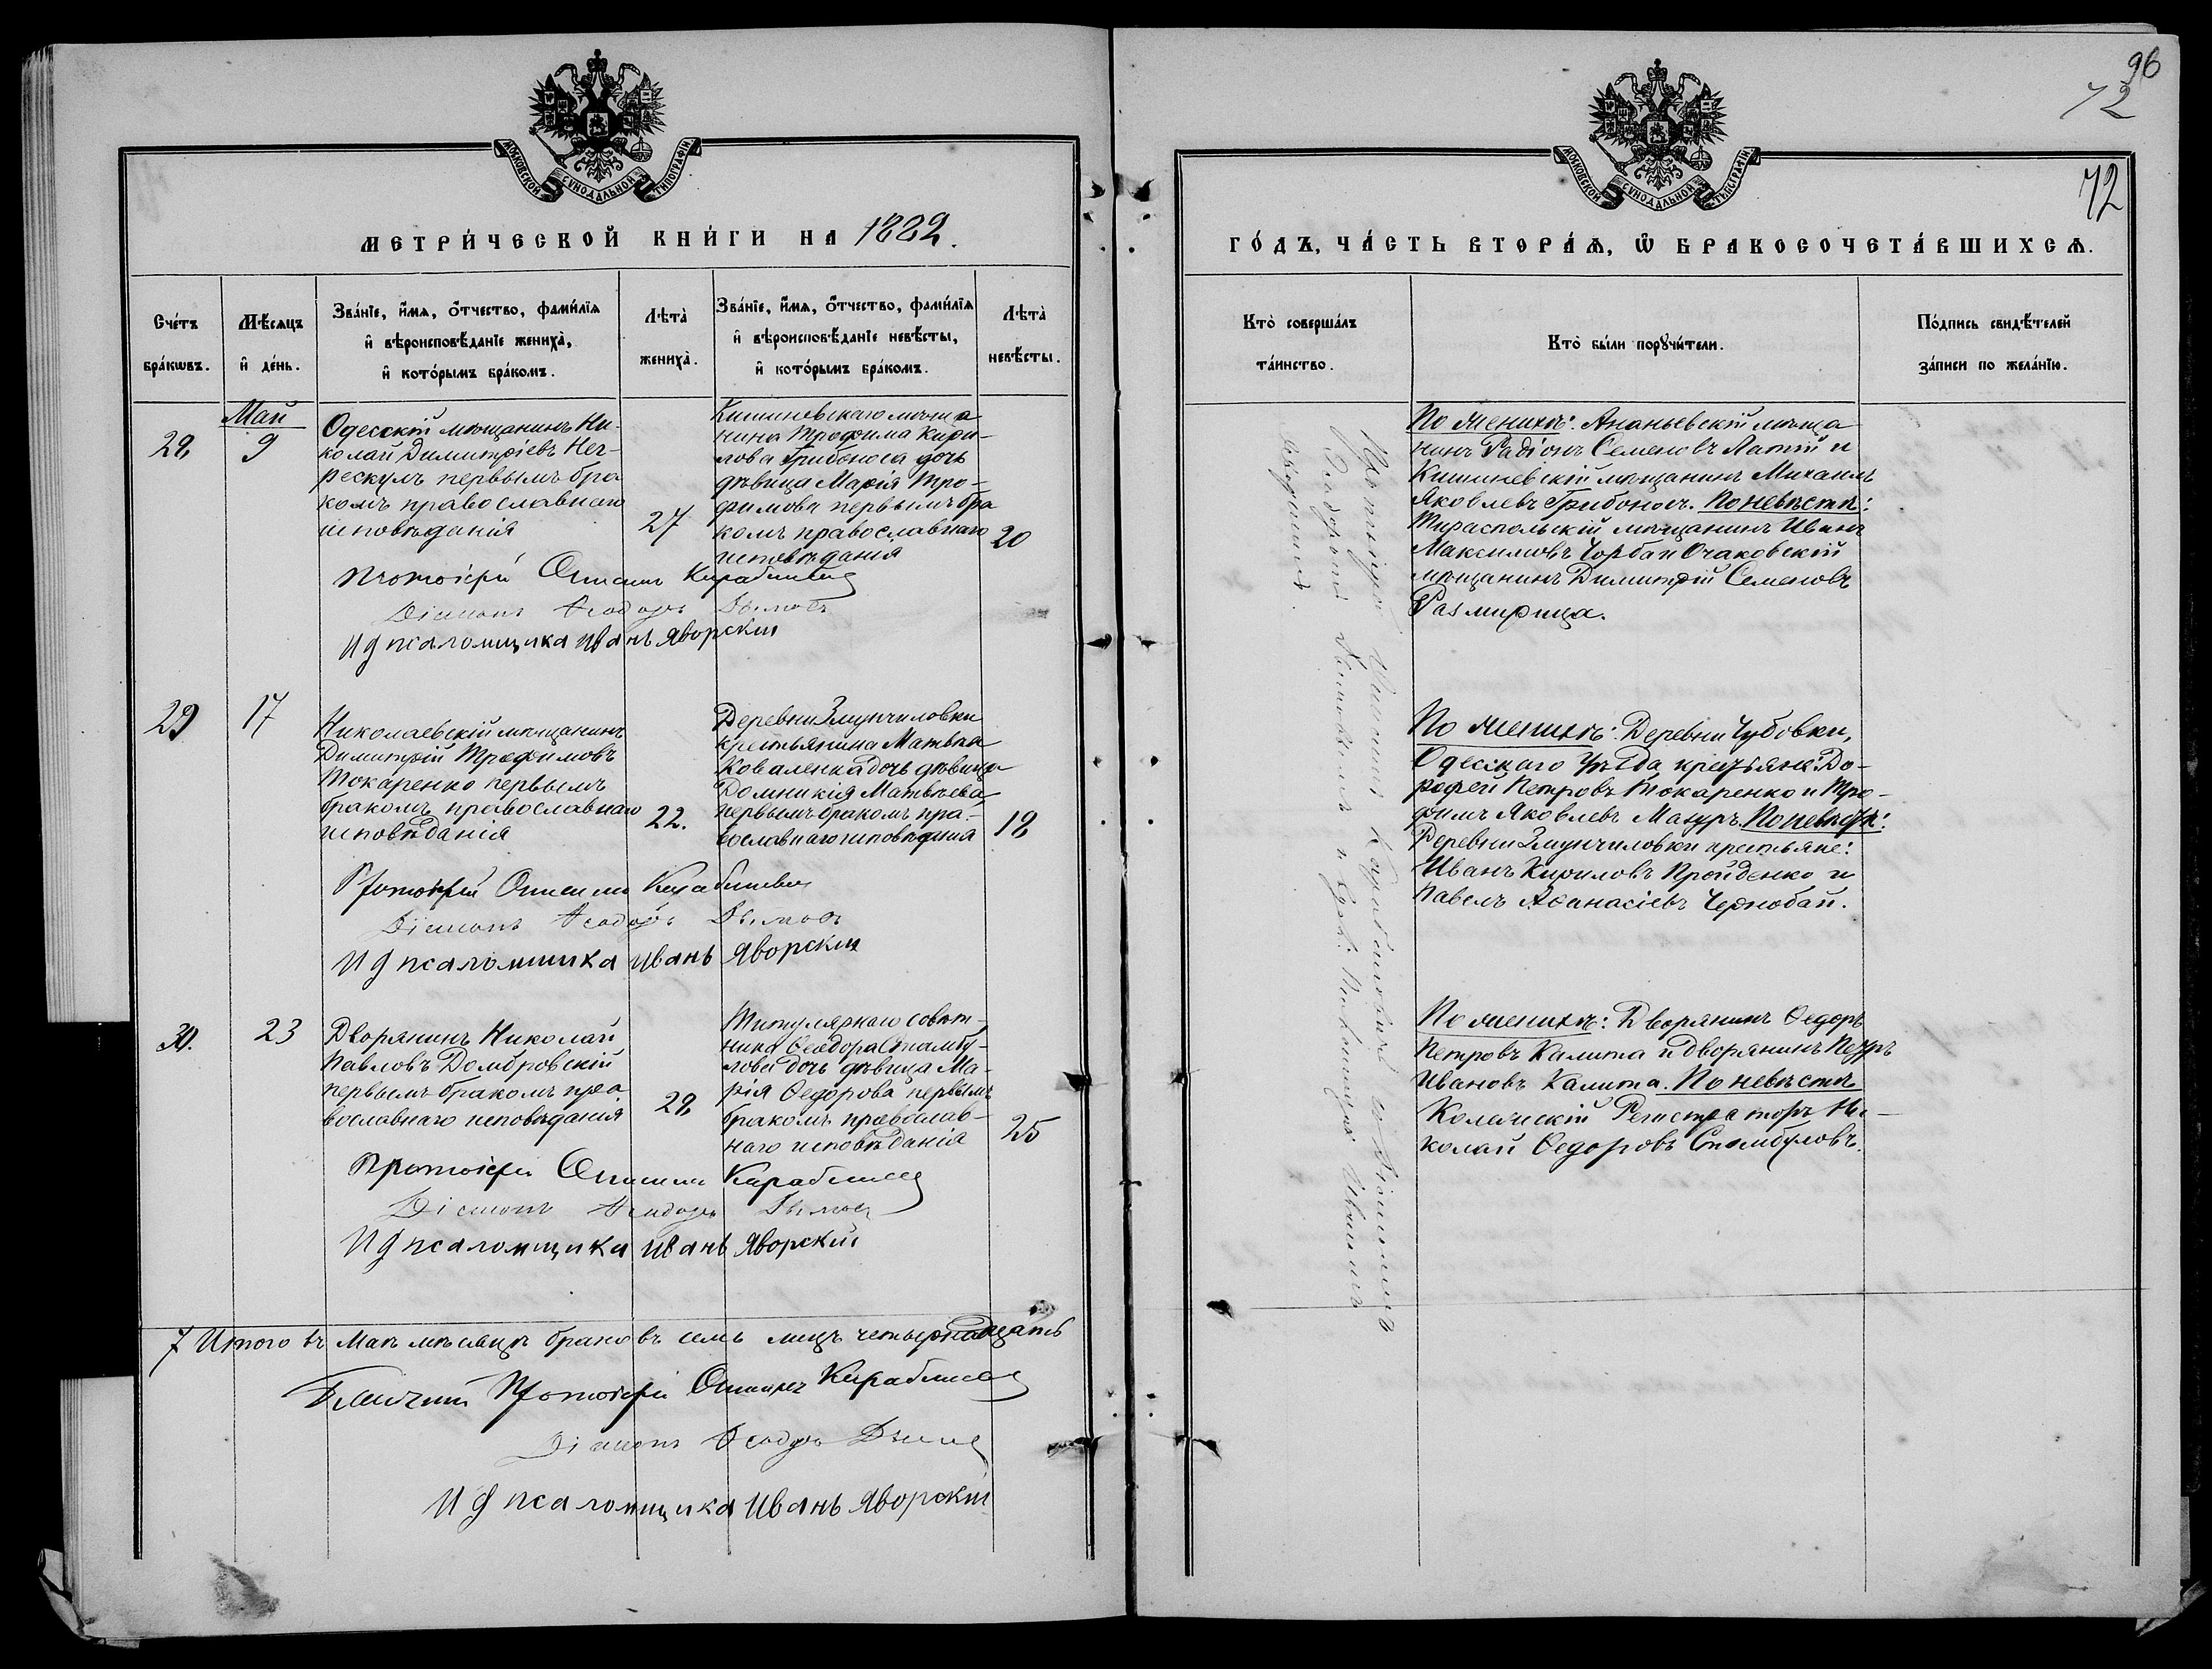 96
72
72
МОСКОВСКОЙ СѴНОДАЛЬНОЙ ТИПОГРАФІИ
МЕТРИ́ЧЕСКОЙ КНИ́ГИ НА 1882.
Сче́тъ бра́кѡвъ.
Мѣ́сяцъ и҆ де́нь.
Зва́нїе, и҆́мѧ, ѻ҆́тчество, фами́лїѧ
и҆ вѣроисповѣ́данїе жениха̀,
и҆ кото́рымъ бра́комъ.
Лѣта̀ жениха̀.
Зва́нїе, и҆́мѧ, ѻ҆́тчество, фами́лїѧ
и҆ вѣроисповѣ́данїе невѣ́сты,
и҆ кото́рымъ бра́комъ.
Лѣта̀ невѣ́сты.
Май
28,
9
Одесскій мѣщанинъ Ни-
колай Димитріевъ Нег-
рескулъ первымъ бра
комъ православнаго
исповѣданія
27
Кишиневскаго мѣща
нина Трофима Кири-
лова Грибоноса дочь
дѣвица Марія Тро-
фимова первымъ бра
комъ православнаго
исповѣданія
20
Протоіерей
Діаконъ Ѳеодоръ
И д псаломщика Иванъ Яворскій
29
17
Николаевскій мѣщанинъ
Димитрій Трофимовъ
Токаренко первымъ
бракомъ православнаго
исповѣданія
22.
Деревни
крестьянина Матвѣя
Коваленка дочь дѣвица
Домникія Матвѣева,
первымъ бракомъ пра-
вославнаго исповѣданія
18
Протоіерей
Діаконъ Ѳеодоръ
И д псаломщика Иванъ Яворскій
30.
23
Дворянинъ Николай
Павловъ Домбровскій
первымъ бракомъ пра
вославнаго исповѣданія
28,
Титулярнаго совѣт-
ника Ѳеодора Стамбу-
лова дочь дѣвица Ма-
рія Ѳедорова первымъ
бракомъ православ-
наго исповѣданія
25
Протоіерей
Діаконъ Ѳеодоръ
И д псаломщика Иванъ Яворскій
7 Итого въ Маѣ мѣсяцѣ браковъ семь лицъ четырнадцать
Протоіерей
Діаконъ Ѳеодоръ
И д псаломщика Иванъ Яворскій
МОСКОВСКОЙ СѴНОДАЛЬНОЙ ТИПОГРАФІИ
ГО́ДЪ, ЧА́СТЬ ВТОРА́Ѧ, Ѽ БРАКОСОЧЕТА́ВШИХСѦ.
Кто̀ соверша́лъ
та́инство.
Кто̀ бы́ли порꙋчи́тели.
По́дпись свидѣ́телей
за́писи по жела́нїю.
Протоіерей
По женихѣ: Ананьевскій мѣща
нинъ Радіонъ Семеновъ Латій и
Кишиневскій мѣщанинъ Михаилъ
Яковлевъ Грибоносъ. По невѣстѣ:
Тираспольскій мѣщанинъ Иванъ
Максимовъ Чорба и Очаковскій
мѣщанинъ Димитрій Семеновъ
Размирица.
По женихѣ: Деревни Чубовки,
Одесскаго Уѣзда крестьяне: До-
рофей Петровъ Токаренко и Тро-
фимъ Яковлевъ Мазуръ. По невѣстѣ:
Деревни крестьяне:
Иванъ Кириловъ Пройденко и
Павелъ Аѳанасіевъ Чернобай.
По женихѣ: Дворянинъ Ѳедоръ
Петровъ Калита и дворянинъ Петръ
Ивановъ Калита. По невѣстѣ
Колежскій Регистраторъ Ни-
колай Ѳедоровъ Стамбуловъ.